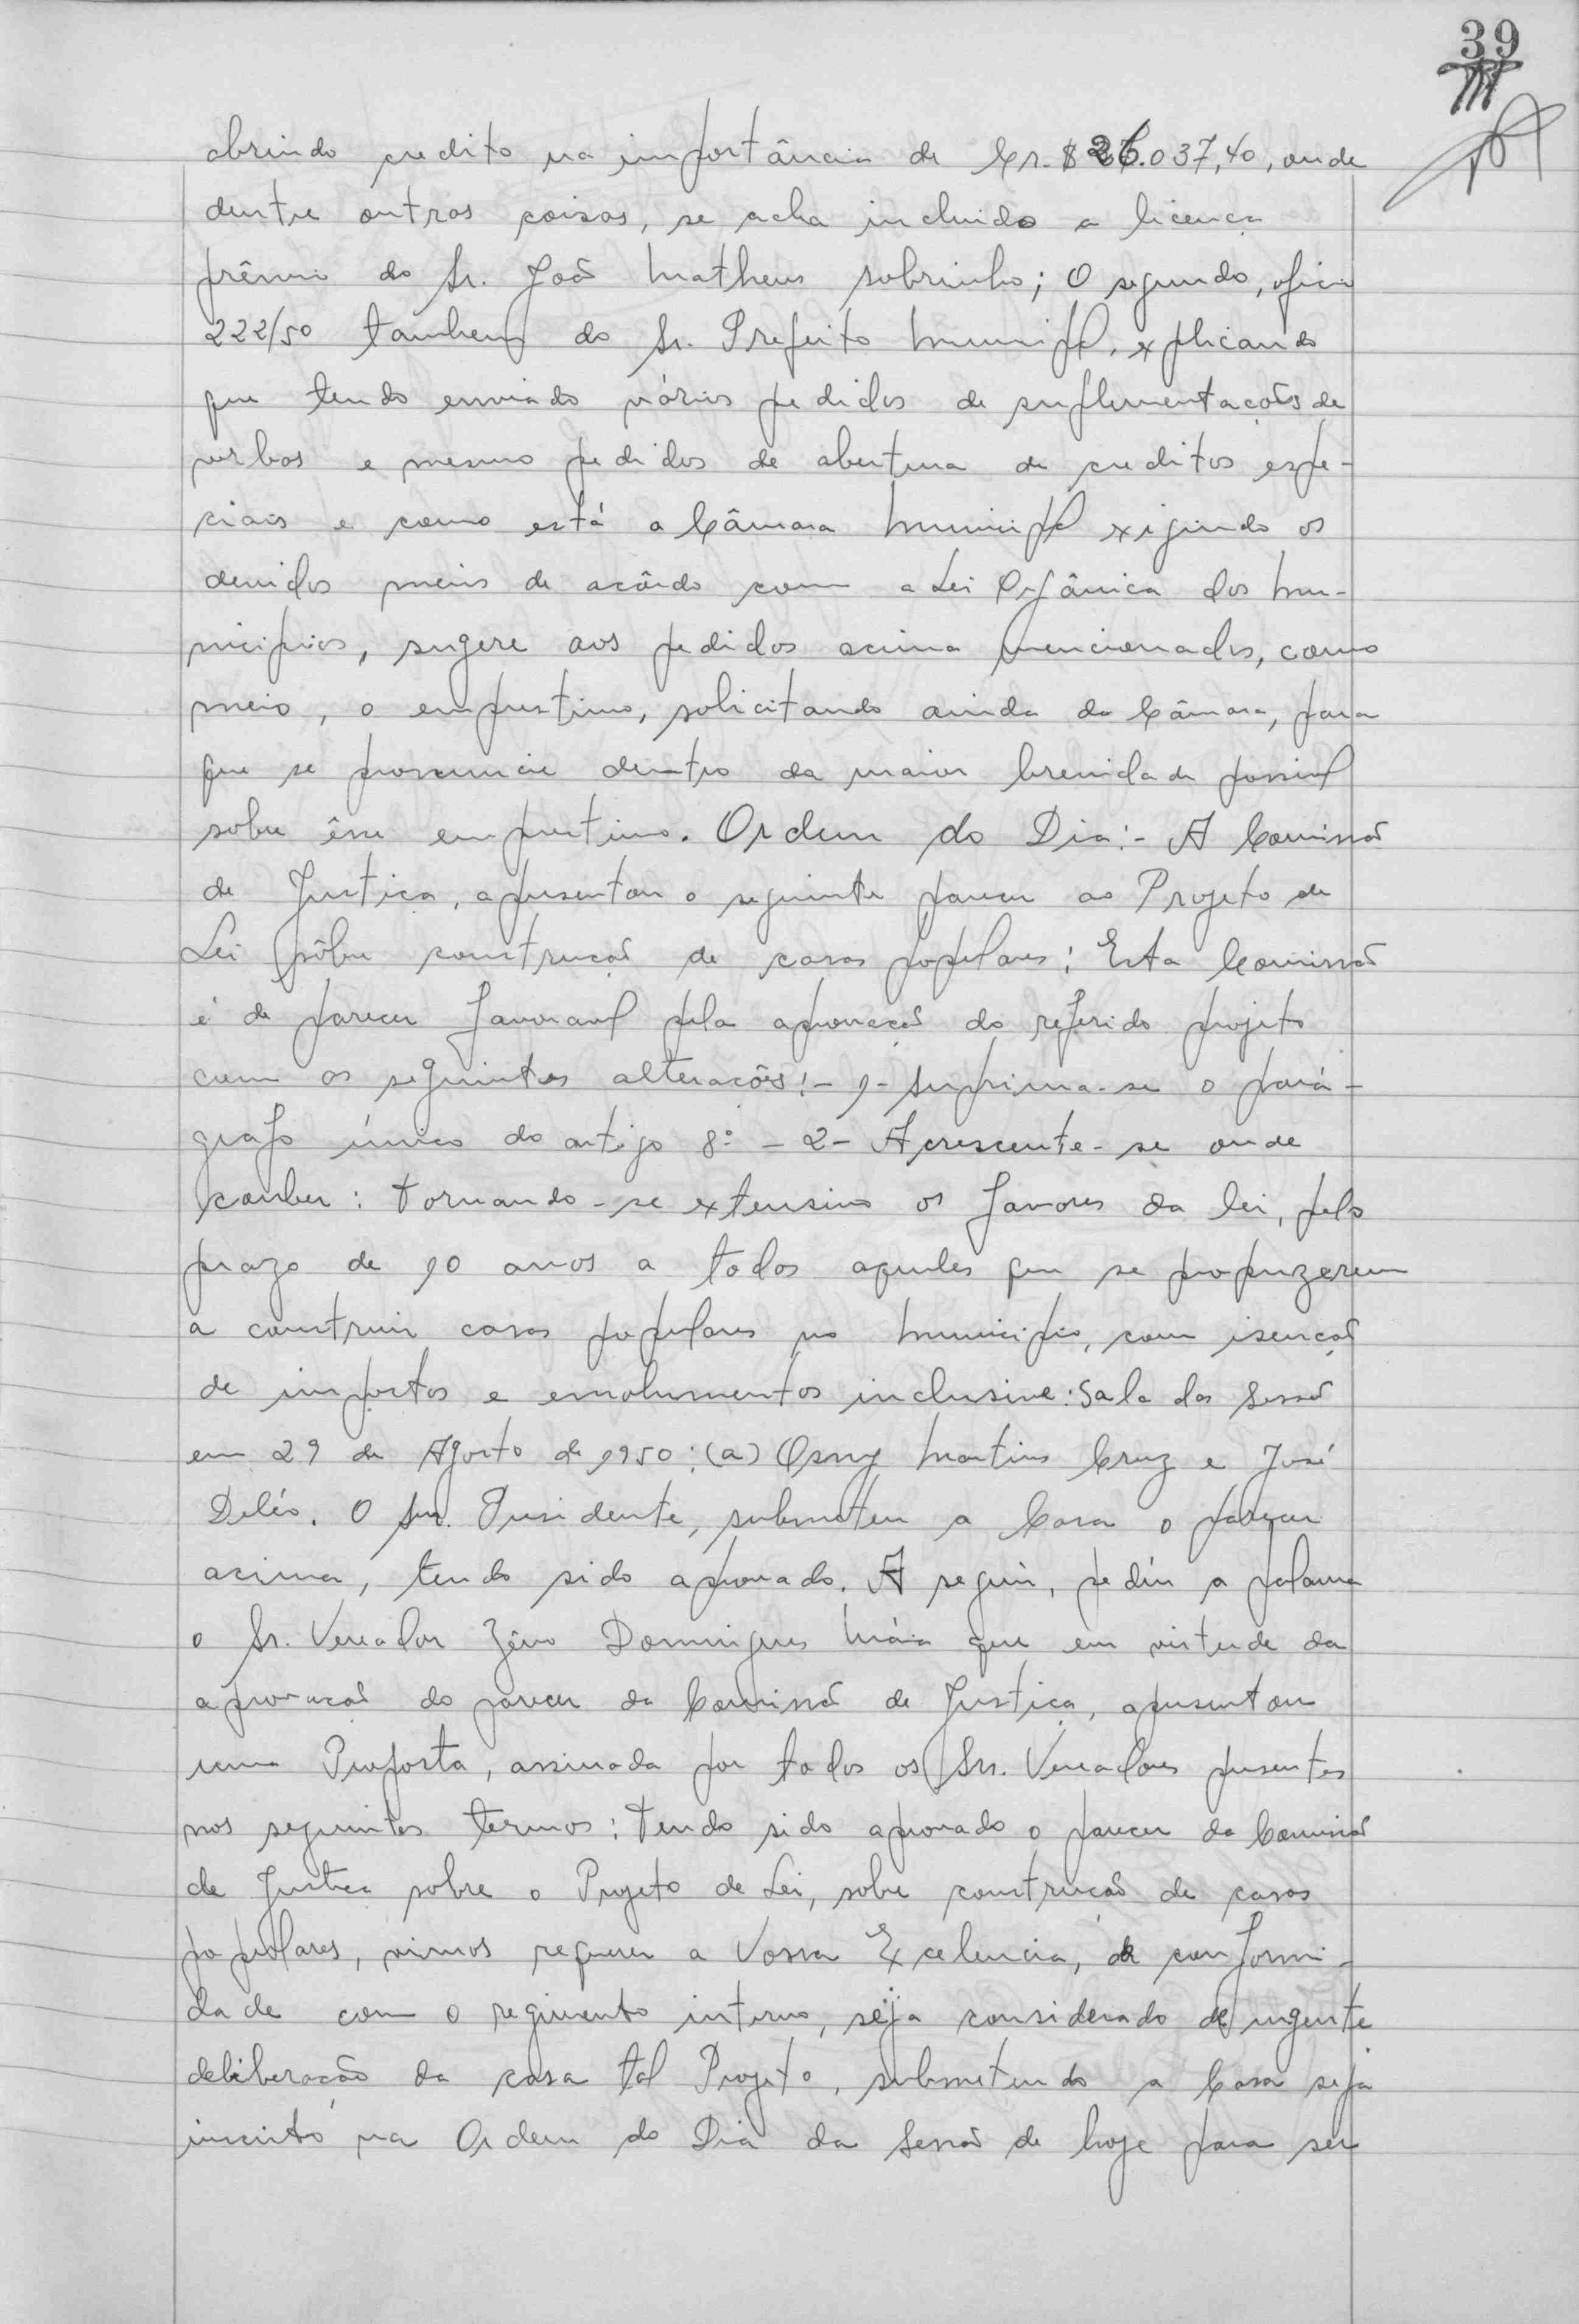 39
abrindo credito na importância de Cr.$ 26.037,40, onde
dentre outras coisas, se acha incluido a licença
prêmio do Sr. João Matheus sobrinho; O segundo, oficio
222/50 tambem do Sr. Prefeito Municipal, explicando
que tendo enviado vários pedidos de suplementações de
verbas e mesmo pedidos de abertura de creditos espe-
ciais e como está a Câmara Municipal exigindo os
devidos meios de acôrdo com a Lei Orgânica dos Mu-
nicipios, sugere aos pedidos acima mencionados, como
meio, o emprestimo, solicitando ainda da Câmara, para
que se pronuncie dentro da maior brevidade possivel
sobre êsse emprestimo. Ordem do Dia:- A Comissão
de Justiça, apresentou o seguinte parecer ao Projeto de
Lei sôbre construção de casas populares: Esta Comissão
é de parecer favoravel pela aprovação do referido projeto
com as seguintes alterações:- 1- Suprima-se o pará-
grafo único do artigo 8º - 2- Acrescente-se onde
couber: tornando-se extensivo os favores da lei, pelo
prazo de 10 anos a todos aqueles que se propuzerem
a construir casas populares no Municipio, com isenção
de impostos e emolumentos inclusive: Sala das Sessões
em 29 de Agosto de 1950: (a) Osny Martins Cruz e José
Deléo. O Snr. Presidente, submeteu a Casa o parecer
acima, tendo sido aprovado. A seguir, pediu a palavra
o Sr. Vereador Zêno Domingues Maia que em virtude da
aprovação do parecer da Comissão de Justiça, apresentou
uma Proposta, assinada por todos os Srs. Vereadores presentes
nos seguintes termos: Tendo sido aprovado o parecer da Comissão
de Justiça sobre o Projeto de Lei, sobre construção de casas
populares, vimos requerer a Vossa Excelencia, de conformi-
dade com o regimento interno, seja considerado de urgente
deliberação da casa tal Projeto, submetendo a Casa seja
inscrito na Ordem do Dia da Sessão de hoje para ser